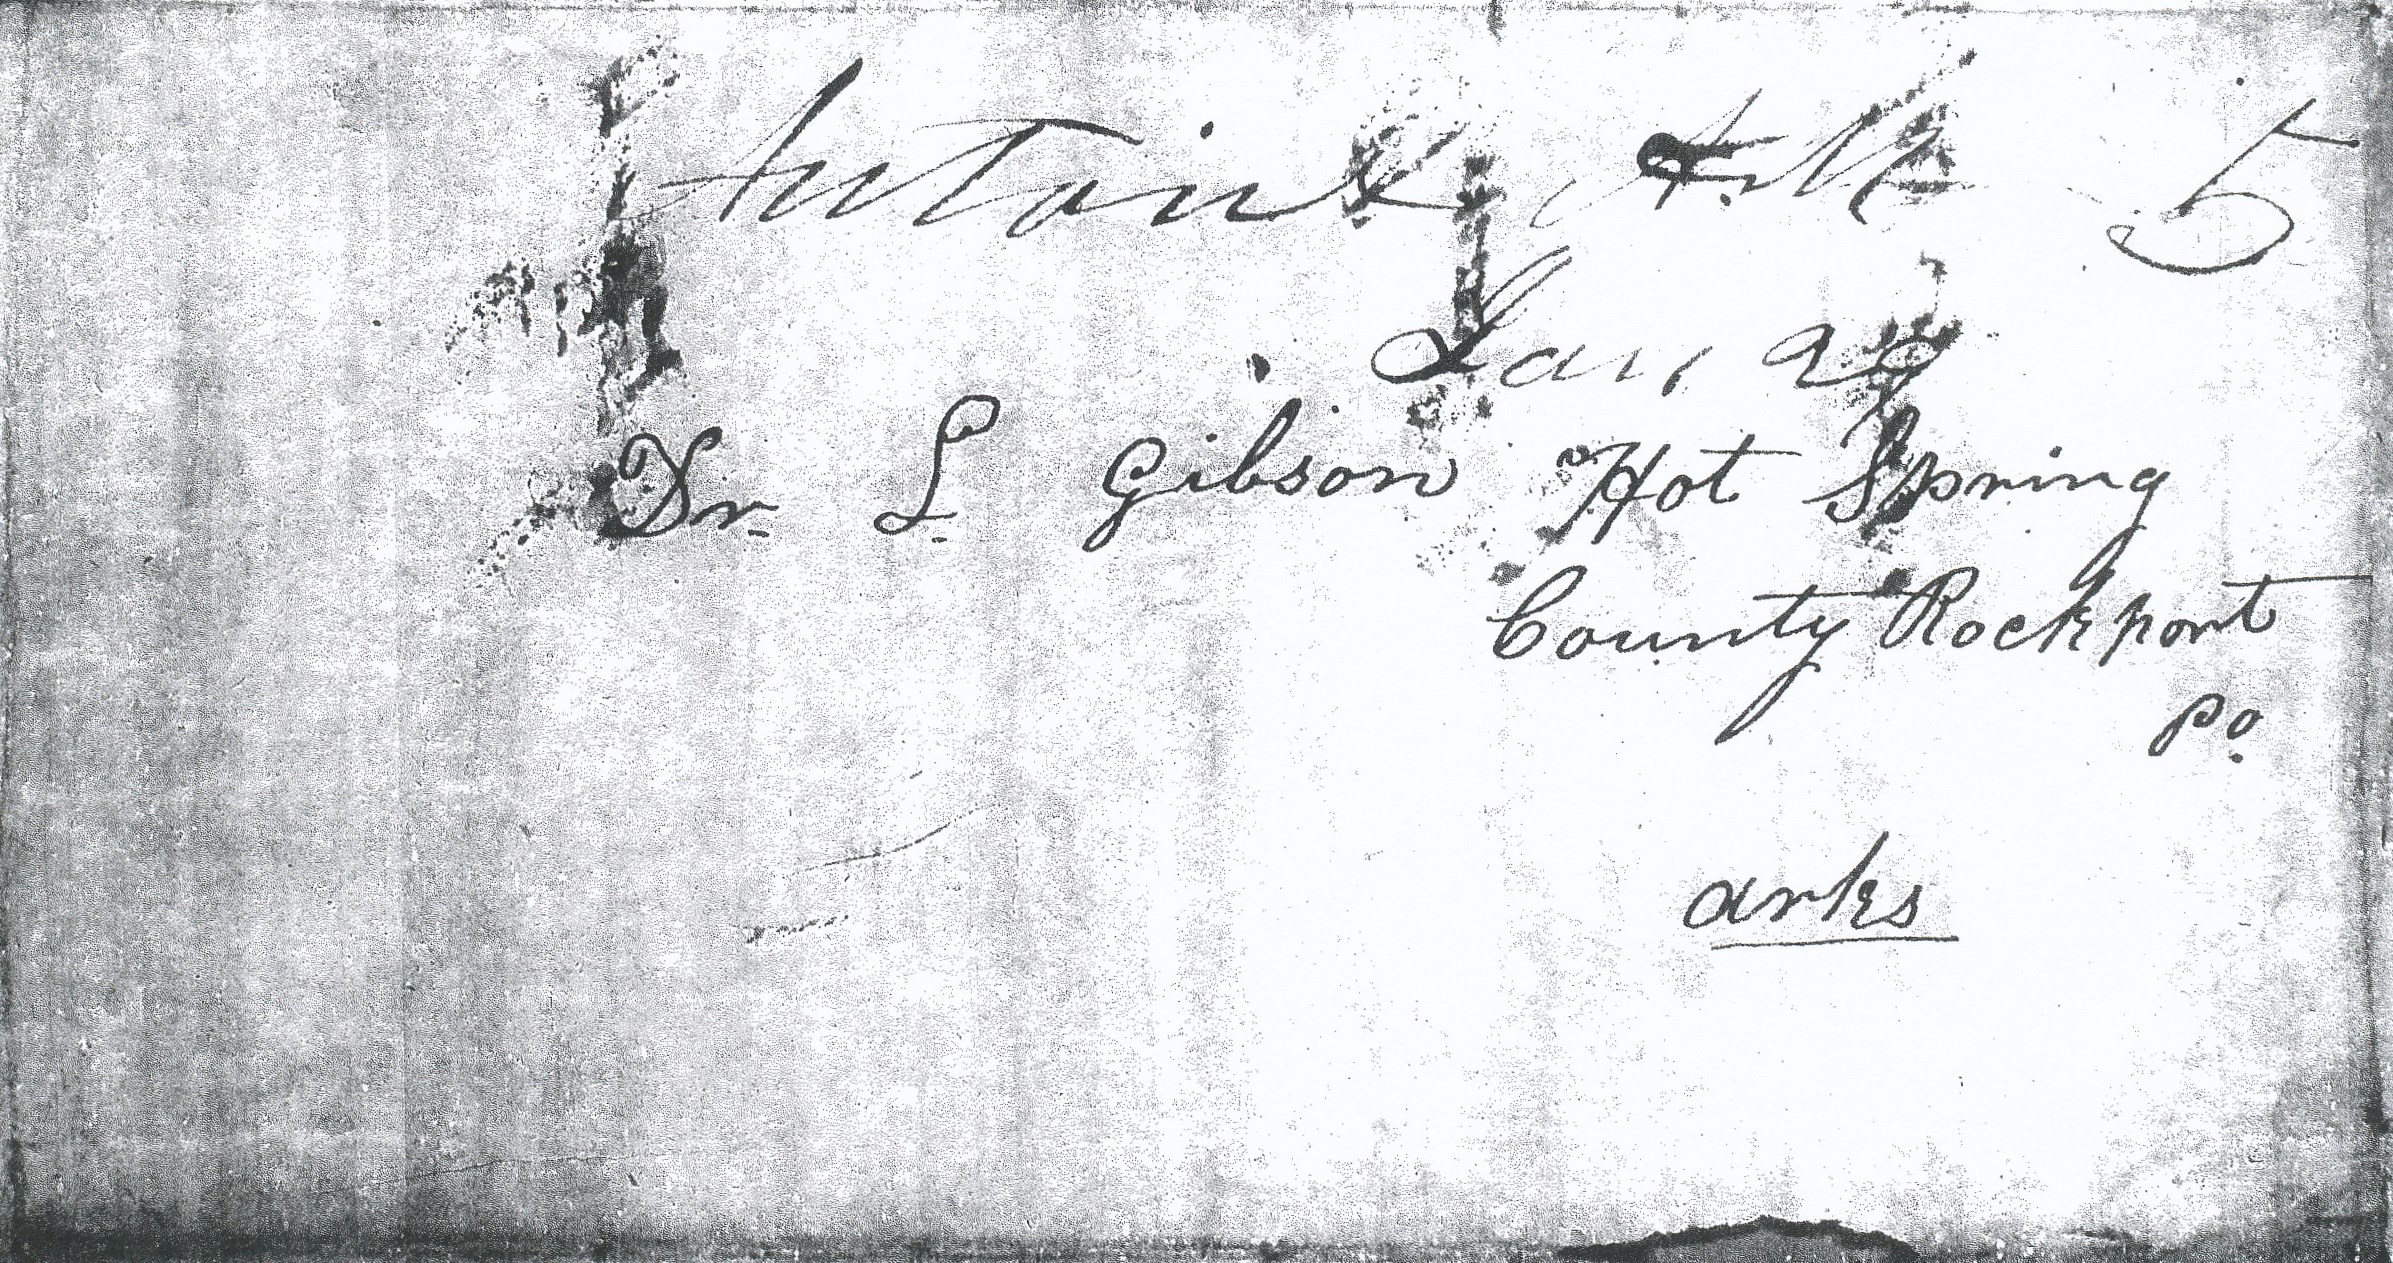 Antoine Ark 5
Jan, 29
Dr. L. Gibson Hot Spring
County Rockport
Po.
arks